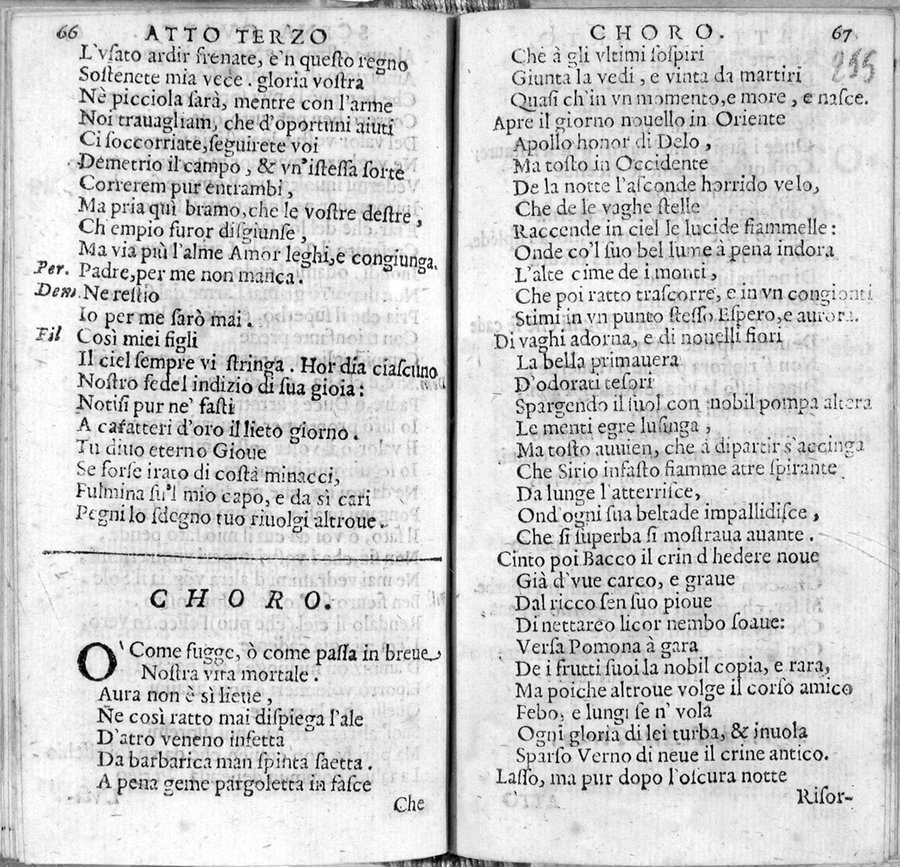 66 ATTO TERZO
L'vſato ardir frenate, e'n queſto regno
Soſtenete mia vece. gloria voſtra
Nè picciola ſarà, mentre con l'arme
Noi trauagliam, che d'oportuni aiuti
Ci ſoccorriate, ſeguirete voi
Demetrio il campo, & vn'iſteſſa ſorte
Correrem pur entrambi,
Ma pria quì bramo, che le voſtre deſtre,
Ch empio furor diſgiunſe,
Ma via più l'alme Amor leghi, e congiunga.
Per. Padre, per me non manca.
Dem. Ne reſtio
Io per me ſarò mai.
Fil Così miei figli
Il ciel ſempre vi ſtringa. Hor dia ciaſcuno
Noſtro fedel indizio di ſua gioia:
Notiſi pur ne' faſti
A caratteri d'oro il lieto giorno.
Tu diuo eterno Gioue
Se forſe irato di coſtà minacci,
Fulmina ſu'l mio capo, e da sì cari
Pegni lo ſdegno tuo riuolgi altroue.
CHORO.
O' Come fugge, ò come paſſa in breue
Noſtra vita mortale.
Aura non è sì lieue,
Ne così ratto mai diſpiega l'ale
D'atro veneno infetta
Da barbarica man ſpinta ſaetta.
A pena geme pargoletta in faſce
Che
CHORO. 67
255
Che à gli vltimi ſoſpiri
Giunta la vedi, e vinta da martiri
Quaſi ch'in vn momento, e more, e naſce.
Apre il giorno nouello in Oriente
Apollo honor di Delo,
Ma toſto in Occidente
De la notte l'aſconde horrido velo,
Che de le vaghe ſtelle
Raccende in ciel le lucide fiammelle:
Onde co'l ſuo bel lume à pena indora
L'alte cime de i monti,
Che poi ratto traſcorre, e in vn congionti
Stimi in vn punto ſteſſo Eſpero, e aurora.
Di vaghi adorna, e di nouelli fiori
La bella primauera
D'odorati teſori
Spargendo il ſuol con nobil pompa altera
Le menti egre luſinga,
Ma toſto auuien, che à dipartir s'accinga
Che Sirio infaſto fiamme atre ſpirante
Da lunge l'atterriſce,
Ond'ogni ſua beltade impallidiſce,
Che sì ſuperba ſi moſtraua auante.
Cinto poi Bacco il crin d hedere noue
Già d'vue carco, e graue
Dal ricco ſen ſuo pioue
Di nettareo licor nembo ſoaue:
Verſa Pomona à gara
De i frutti ſuoi la nobil copia, e rara,
Ma poiche altroue volge il corſo amico
Febo, e lungi ſe n' vola
Ogni gloria di lei turba, & inuola
Sparſo Verno di neue il crine antico.
Laſſo, ma pur dopo l'oſcura notte
Riſor-